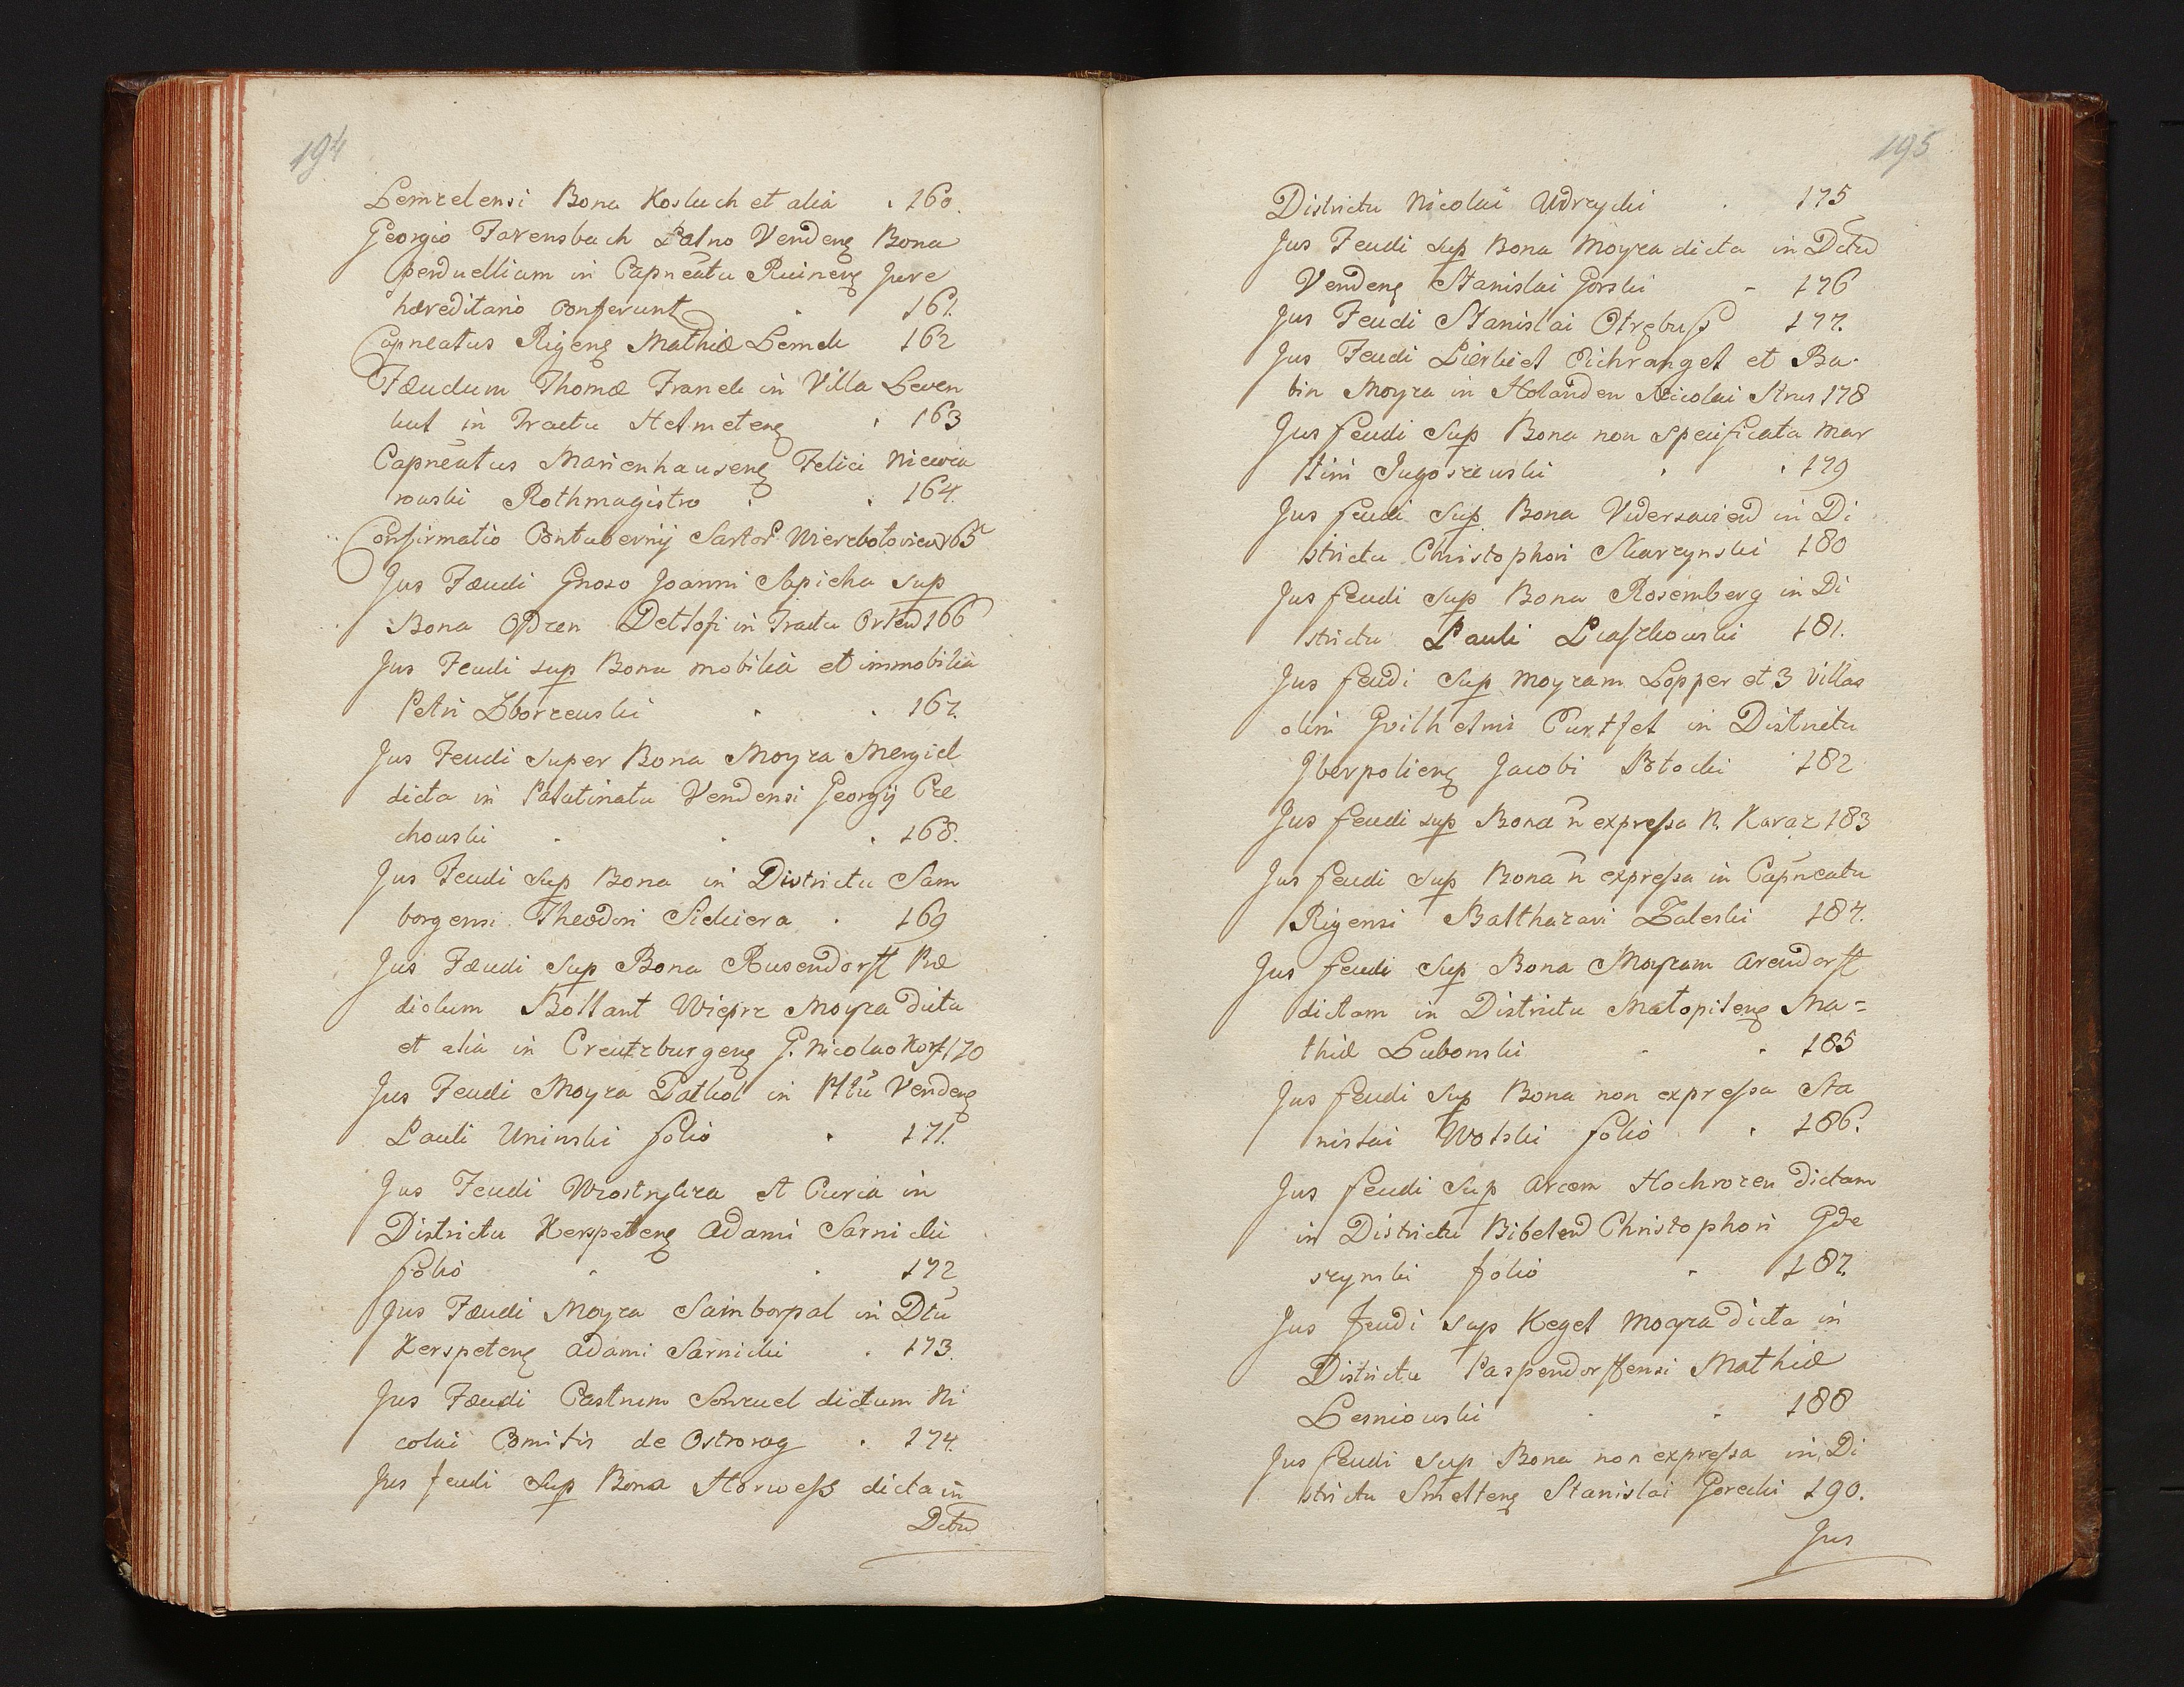 194
Lemzelensi Bona Kosluch et alia . 160.
Georgio Farensbach Palno Vendenȩ Bona
perduellium in Capneatu Ruinenȩ Jure
hæreditario conferunt . 161.
Capneatus Rigenȩ Mathiæ Lemck 162
Fæudum Thomæ Franck in Villa Leven
hut in Tractu Helmetenȩ . 163
Capneatus Marienhausenȩ Felici Niewia
rowski Rothmagistro . . 164.
Confirmatio Contubernij Sartor 165
Jus Fæudi Gnoso Joanni Sapieha sup
Bona Detlofi in Tractu 166
Jus Feudi sup Bona mobilia et immobilia
Petri Zborzewski . . 167.
Jus Feudi super Bona Moyza Mergiel
dicta in Palatinatu Vendensi Georgij Cie
chowski . . . 168.
Jus Feudi sup Bona in Districtu Sam
borgensi Theodori Sickiera . 169
Jus Fæudi sup Bona Rusendorff Præ
diolum Bollant Wieprz Moyza dicta
et alia in Creutzburgenȩ G. Nicolao Korf 170
Jus Feudi Moyza Patkol in Pltu Vendenȩ
Pauli Uninski folio . 171.
Jus Feudi et Curia in
Districtu Kerspetenȩ Adami Sarnicki
folio . . 172
Jus Fæudi Moyza Samborpal in Dtu
Kerspetenȩ Adami Sarnicki . 173.
Jus Fæudi Castrum dictum Ni
colai Comitis de Ostrorog . 174.
Jus feudi sup Bona Horwess dicta in
Dctu
195
Districtu Nicolai Udrycki . 175
Jus Feudi sup Bona Moyza dicta in Dctu
Vendenȩ Stanislai Gorski - 176
Jus Feudi Stanislai Otrębuss 177.
Jus Feudi et Ba-
bin Moyza in Holanden Nicolai Strus 178
Jus feudi sup Bona non specificata Mar
tini Jugoszewski . . 179
Jus feudi sup Bona in Di
strictu Christophori Skarzynski 180
Jus feudi sup Bona Rosemberg in Di
strictu Pauli 181.
Jus feudi sup Moyzam Lopper et 3 villas
olim Gvilhelmi in Districtu
Iberpolienȩ Jacobi Potocki 182
Jus feudi sup Bona ñ expressa N. Karaz 183
Jus feudi sup Bona ñ expressa in Capneatu
Rigensi Balthazari Zaleski 184.
Jus feudi sup Bona Moyzam Arendorff
dictam in Districtu Matopilenȩ Ma=
thiæ Lubonski . . 185
Jus feudi sup Bona non expressa Sta
nislai Wolski folio . 186.
Jus feudi sup Arcem Hochrozen dictam
in Districtu Christophori Gde
szynski folio . 187.
Jus feudi sup Kegel Moyza dicta in
Districtu Paspendorffensi Mathiæ
Lesniowski . . 188
Jus feudi sup Bona non expressa in Di
strictu Smeltenȩ Stanislai Gorecki 190.
Jus